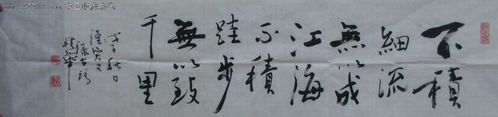 不積
細流
無以成
江海
不積
跬步
無以致
千里
戊子秋日